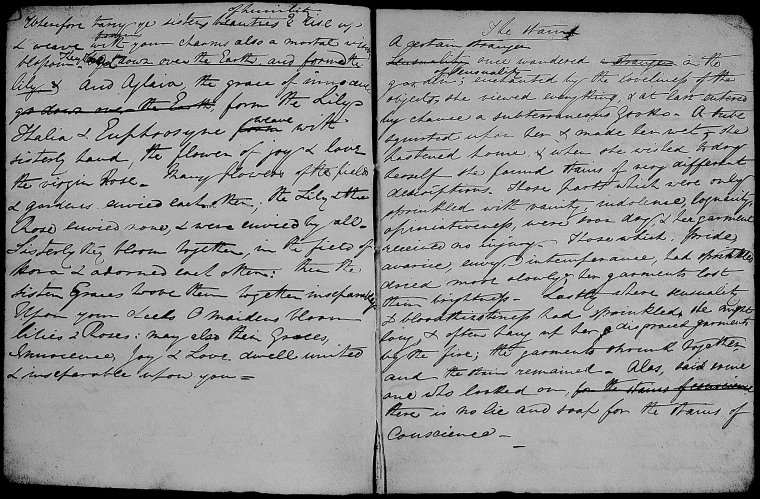 of humility
Wherefore tarry ye sisters beauties? rise up
& weave with your charms also a mortal
blossom. They down over the Earth and form the
lily & And Aglaia, the grace of innocence
go down over the Earth, form the Lily,
Thalia & Euphrosyne form weave with
sisterly hand, the flower of joy & love
the virgin Rose. Many flowers of the field
& gardens envied each other; the Lily & the
Rose envied none, & were envied by all.
Sisterly they bloom together, in the field of
& adorned each other: then the
sister Graces wove them together inseparably
Upon your cheeks O maidens bloom
lilies & Roses: may also their Graces,
Innocence, Joy & Love dwell united
& inseparable upon you =
The Stains
A certain stranger
Sensuality once wandered a stranger in the
garden of Sensuality; enchanted by the loveliness of the
objects, she viewed everything, & at last entered
by chance a subterraneous Grotto. A tube
spirted upon her & made her wet & she
hastened home, & when she wished to dry
herself she found stains of very different
descriptions. Those parts which were only
sprinkled with vanity, indolence, loquacity,
inquisitiveness, were soon dry & her garment
received no injury. Those which Pride,
avarice, envy, intemperance, had sprinkled
dried more slowly & her garments lost
their brightness. Lastly where sensuality
& bloodthirstiness had sprinkled, she might
long & often hang up her disgraced garments
by the fire; the garments shrunk together
and the stain remained. Alas, said some
one who looked on, for the stains of conscience
there is no lie and soap for the stains of
Conscience.